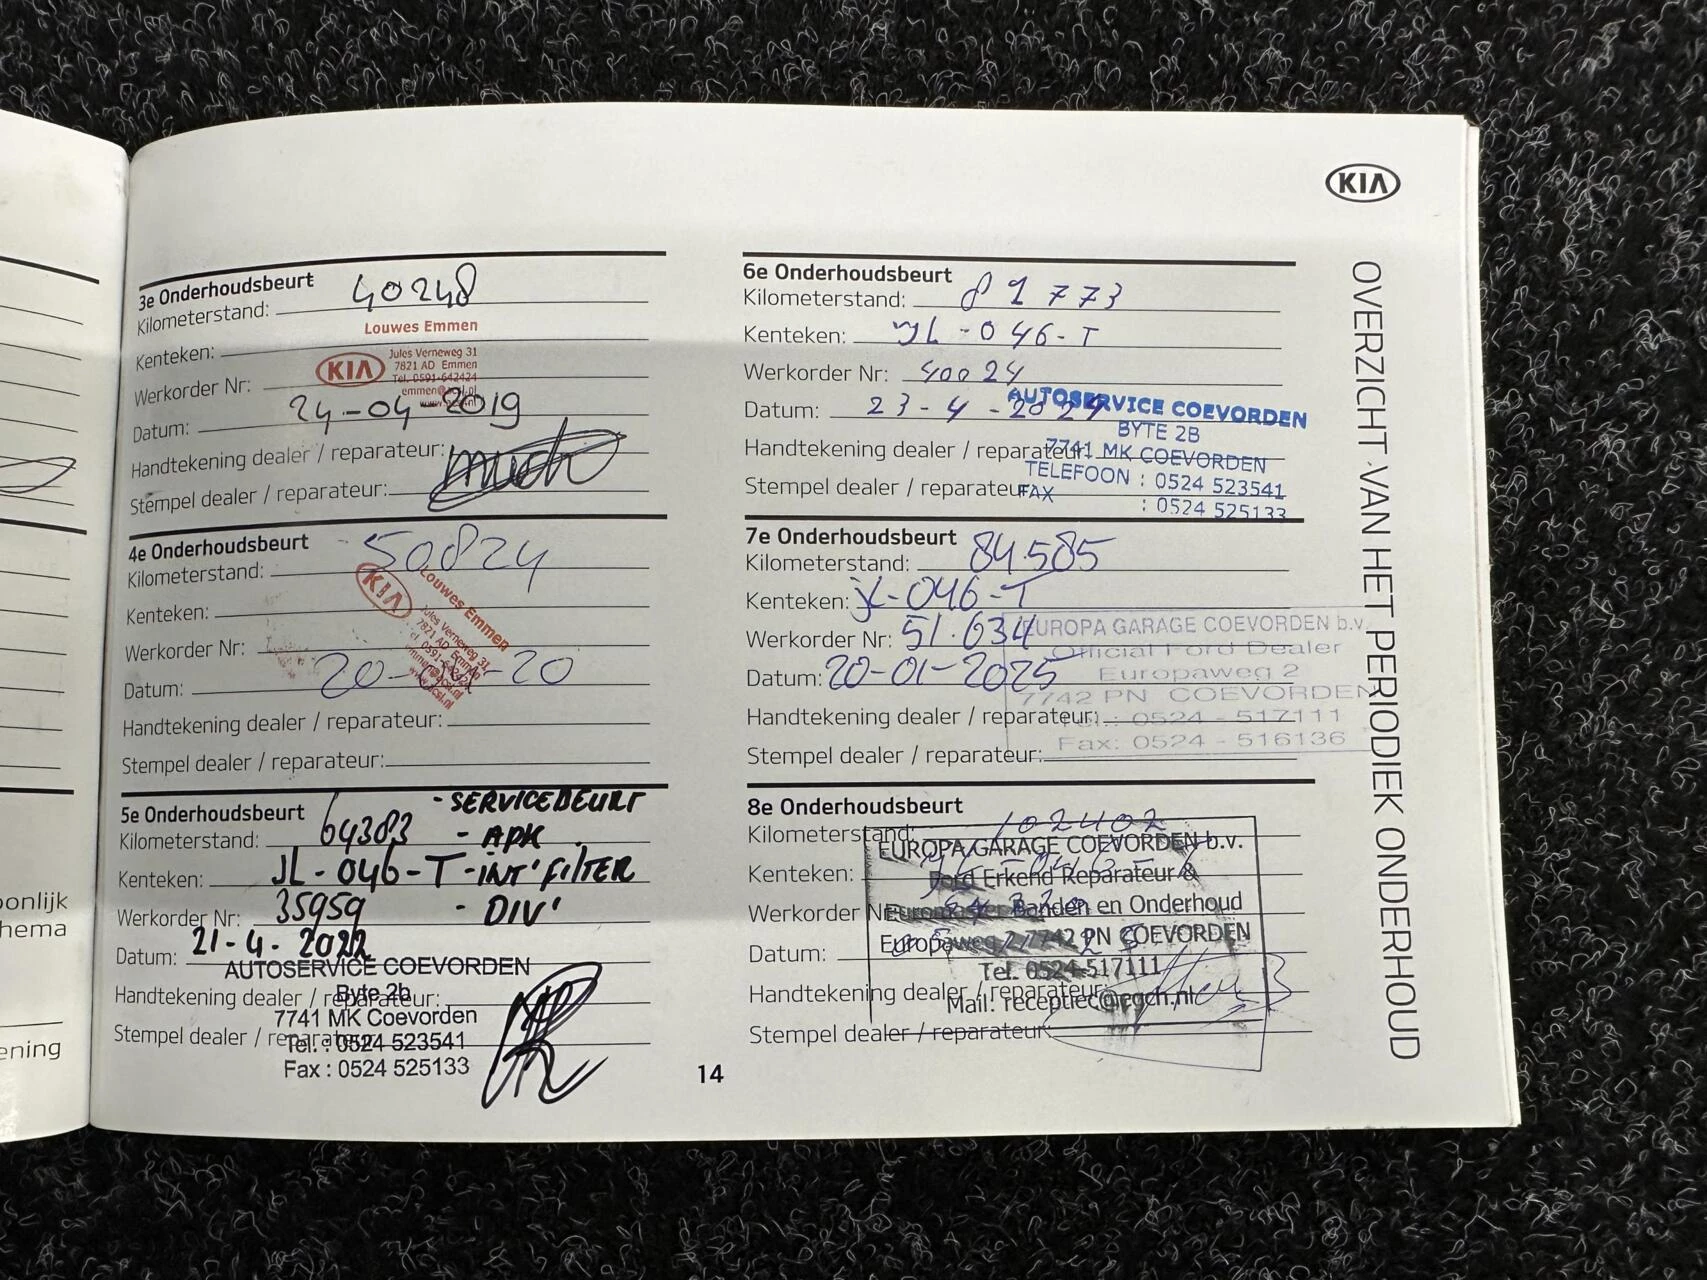 KIA
OVERZICHT VAN HET PERIODIEK ONDERHOUD
3e Onderhoudsbeurt
Kilometerstand: 40248
Louwes Emmen
KIA
Jules Verneweg 31
7821 AD Emmen
Tel. 0591-642424
Kenteken:
Werkorder Nr:
Datum: 24-04-2019
Handtekening dealer / reparateur:
Stempel dealer / reparateur:
4e Onderhoudsbeurt
Kilometerstand: 50824
KIA
Louwes Emmen
Jules Verneweg 31
7821 AD Emmen
Kenteken:
Werkorder Nr:
Datum: 20- -20
Handtekening dealer / reparateur:
Stempel dealer / reparateur:
5e Onderhoudsbeurt - SERVICEBEURT
Kilometerstand: 64383 - APK
Kenteken: JL-046-T - INT' FILTER
Werkorder Nr: 35959 - DIV'
Datum: 21-4-2022
AUTOSERVICE COEVORDEN
Handtekening dealer / reparateur:
Byte 2b
7741 MK Coevorden
Stempel dealer / reparateur:
Tel. : 0524 523541
Fax : 0524 525133
6e Onderhoudsbeurt
Kilometerstand: 81773
Kenteken: JL-046-T
Werkorder Nr: 40024
Datum: 23-4-2024
AUTOSERVICE COEVORDEN
BYTE 2B
Handtekening dealer / reparateur:
7741 MK COEVORDEN
TELEFOON : 0524 523541
Stempel dealer / reparateur:
FAX : 0524 525133
7e Onderhoudsbeurt
Kilometerstand: 84.585
Kenteken: JL-046-T
Werkorder Nr: 51.634
EUROPA GARAGE COEVORDEN b.v.
Official Ford Dealer
Datum: 20-01-2025
Europaweg 2
7742 PN COEVORDEN
Handtekening dealer / reparateur:
Tel.: 0524 - 517111
Fax: 0524 - 516136
Stempel dealer / reparateur:
8e Onderhoudsbeurt
Kilometerstand: 102402
EUROPA GARAGE COEVORDEN b.v.
Kenteken:
Ford Erkend Reparateur &
Werkorder Nr:
Euromaster Banden en Onderhoud
Datum:
Europaweg 2 7742 PN COEVORDEN
Tel. 0524-517111
Handtekening dealer / reparateur:
Mail: receptiec@egch.nl
Stempel dealer / reparateur:
14
onlijk
hema
ening